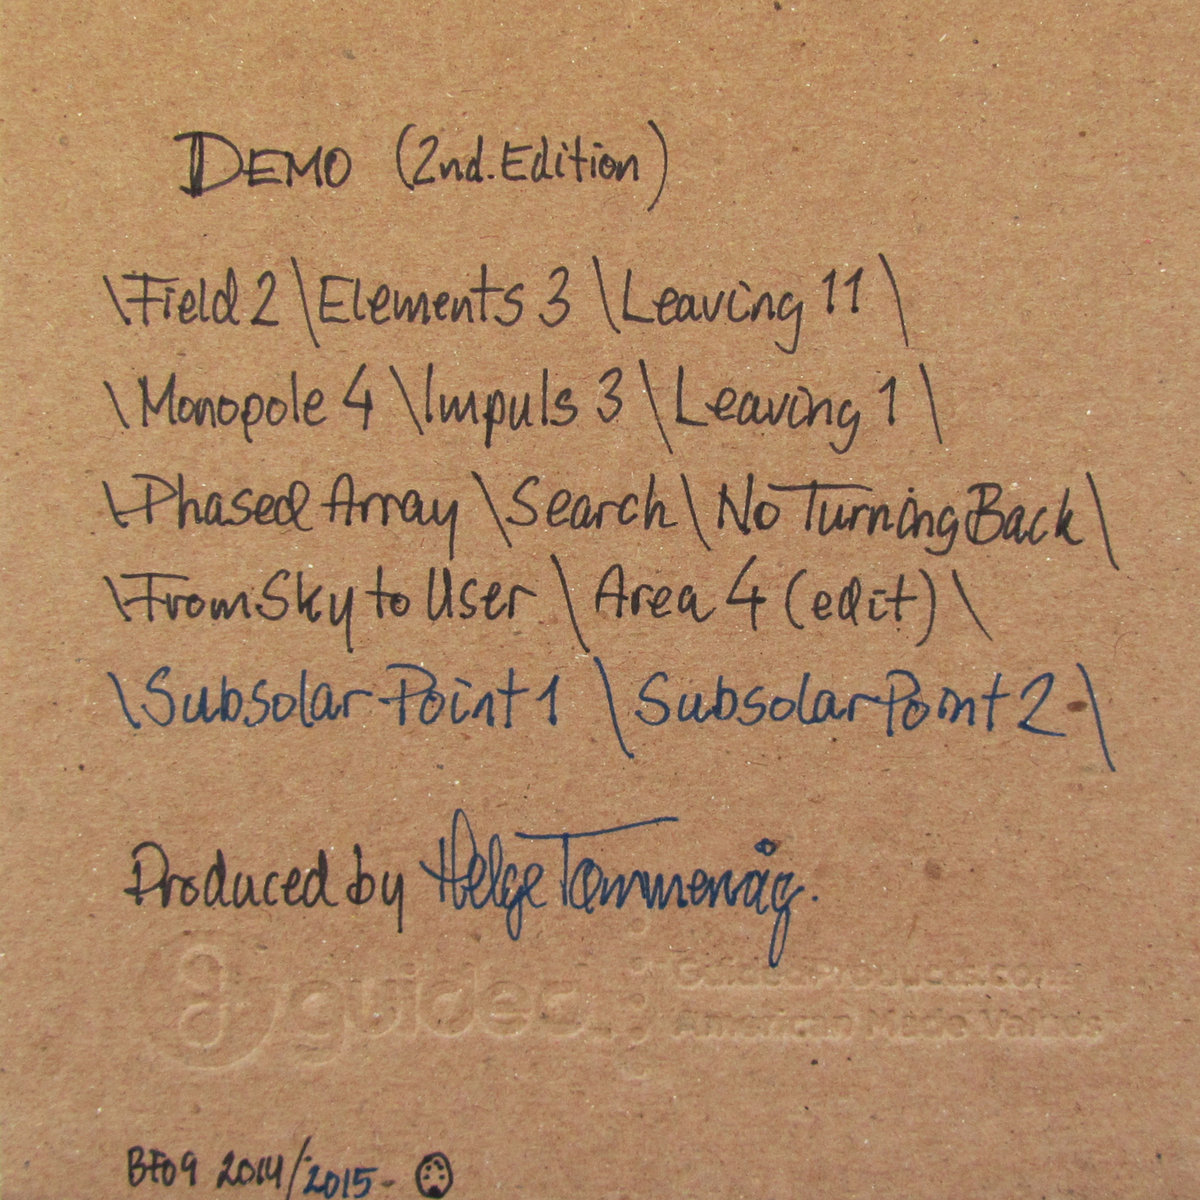 DEMO (2nd.Edition)
\Field 2 \Elements 3 \Leaving 11 \
\Monopole 4 \Impuls 3 \Leaving 1 \
\Phased Array \Search \No Turning Back \
\From Sky to User \ Area 4 (edit) \
\Subsolar Point 1 \ Subsolar Point 2 \
Produced by Helge Tømmervåg.
guided
GuidedProducts.com
American Made Values
BF09 2014/2015-